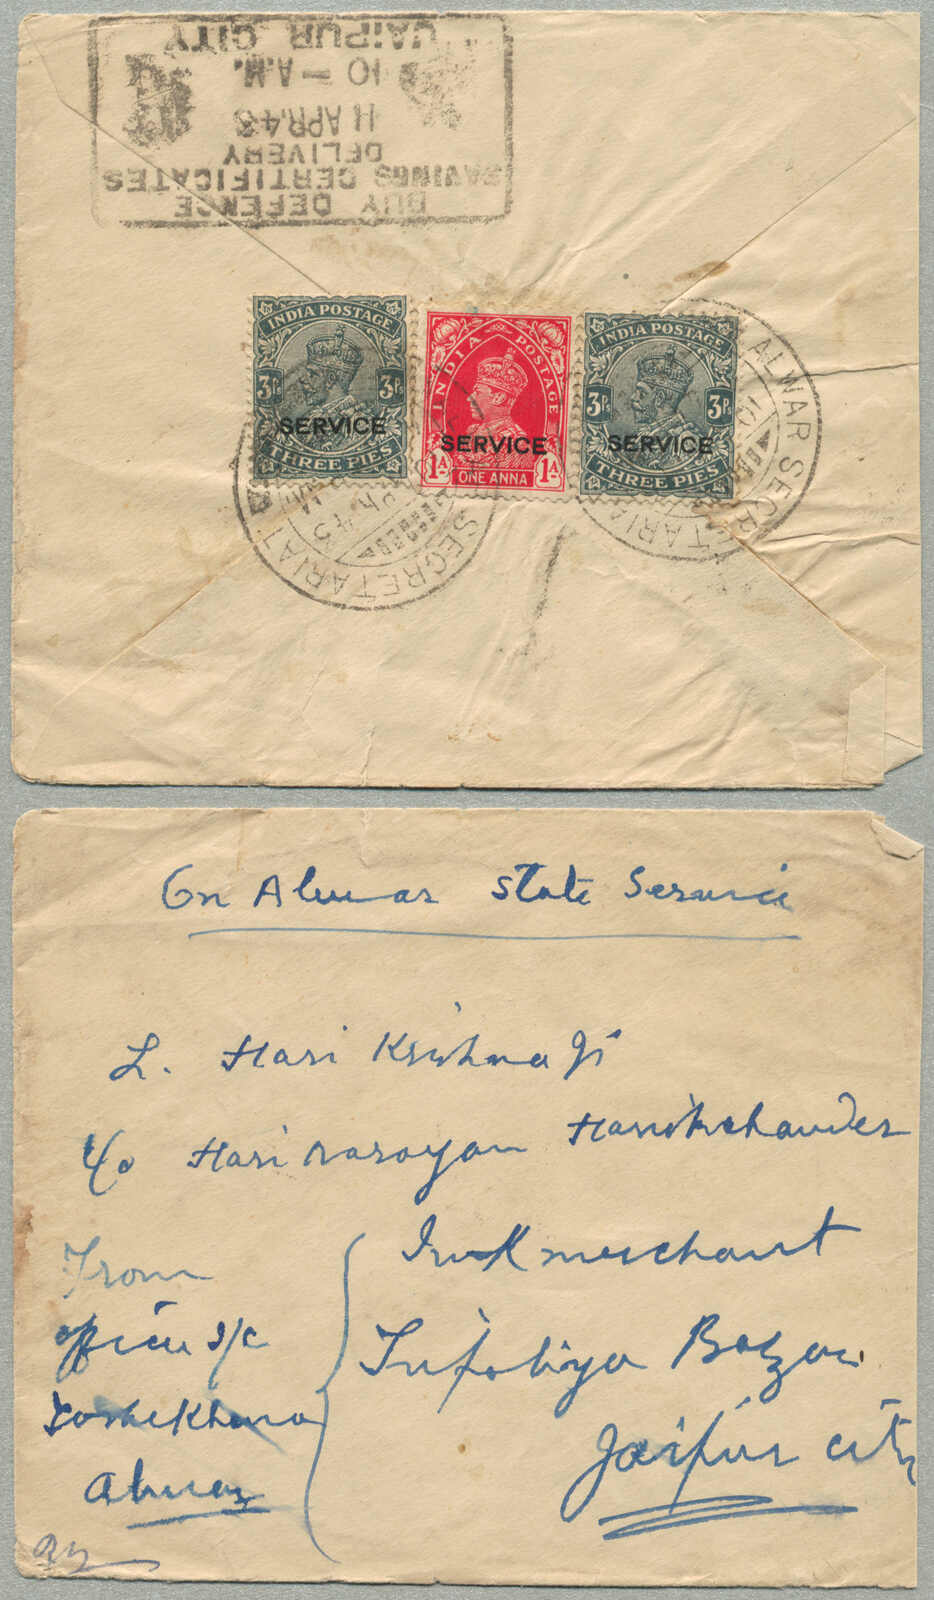 JAIPUR CITY
10 - A.M.
11 APR.43
DELIVERY
SAVINGS CERTIFICATES
BUY DEFENCE
INDIA POSTAGE
3Ps 3Ps
SERVICE
THREE PIES
INDIA POSTAGE
SERVICE
1A 1A
ONE ANNA
INDIA POSTAGE
3Ps 3Ps
SERVICE
THREE PIES
SECRETARIAT
ALWAR SECRETARIA
On Alwar State Service
L. Hari Krishna Ji
C/o Hari narayan Harishchander
merchant
Bazar
Jaipur city
From
officer I/c
Toshekhana
Alwar